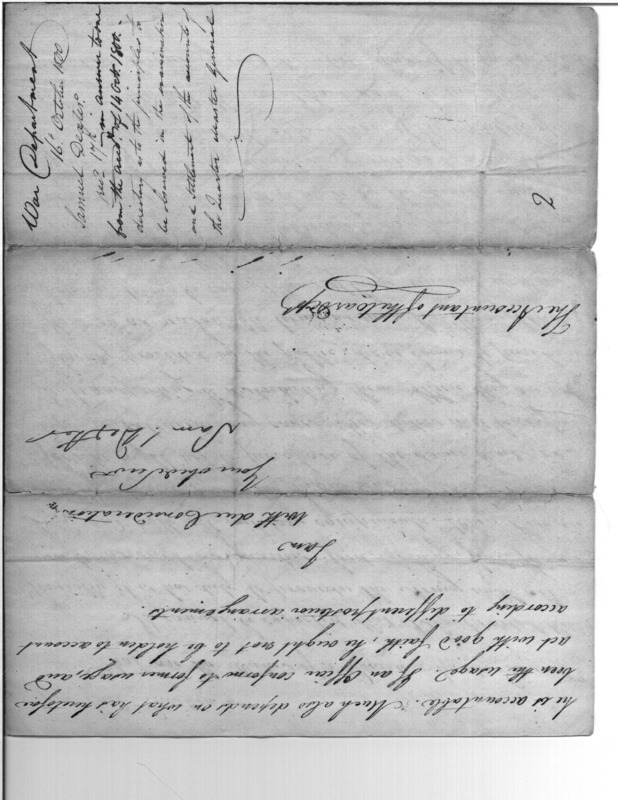 he is accountable. Much also depends on what has heretofore
been the usage. If an Officer conforms to former usage, and
act with good faith, he ought not to be holden to account
according to different posterior arrangements.
I am
with due Consideration
Your obed Serv
Sam. Dexter
The Accountant of the War Dep
War Department
16 October 1800
Samuel Dexter
rec 17 in answer to one
from the of 14 Oct. 1800.
directory as to the principles to
be pursued in the examination
and settlement of the accounts of
the Quarter Master General